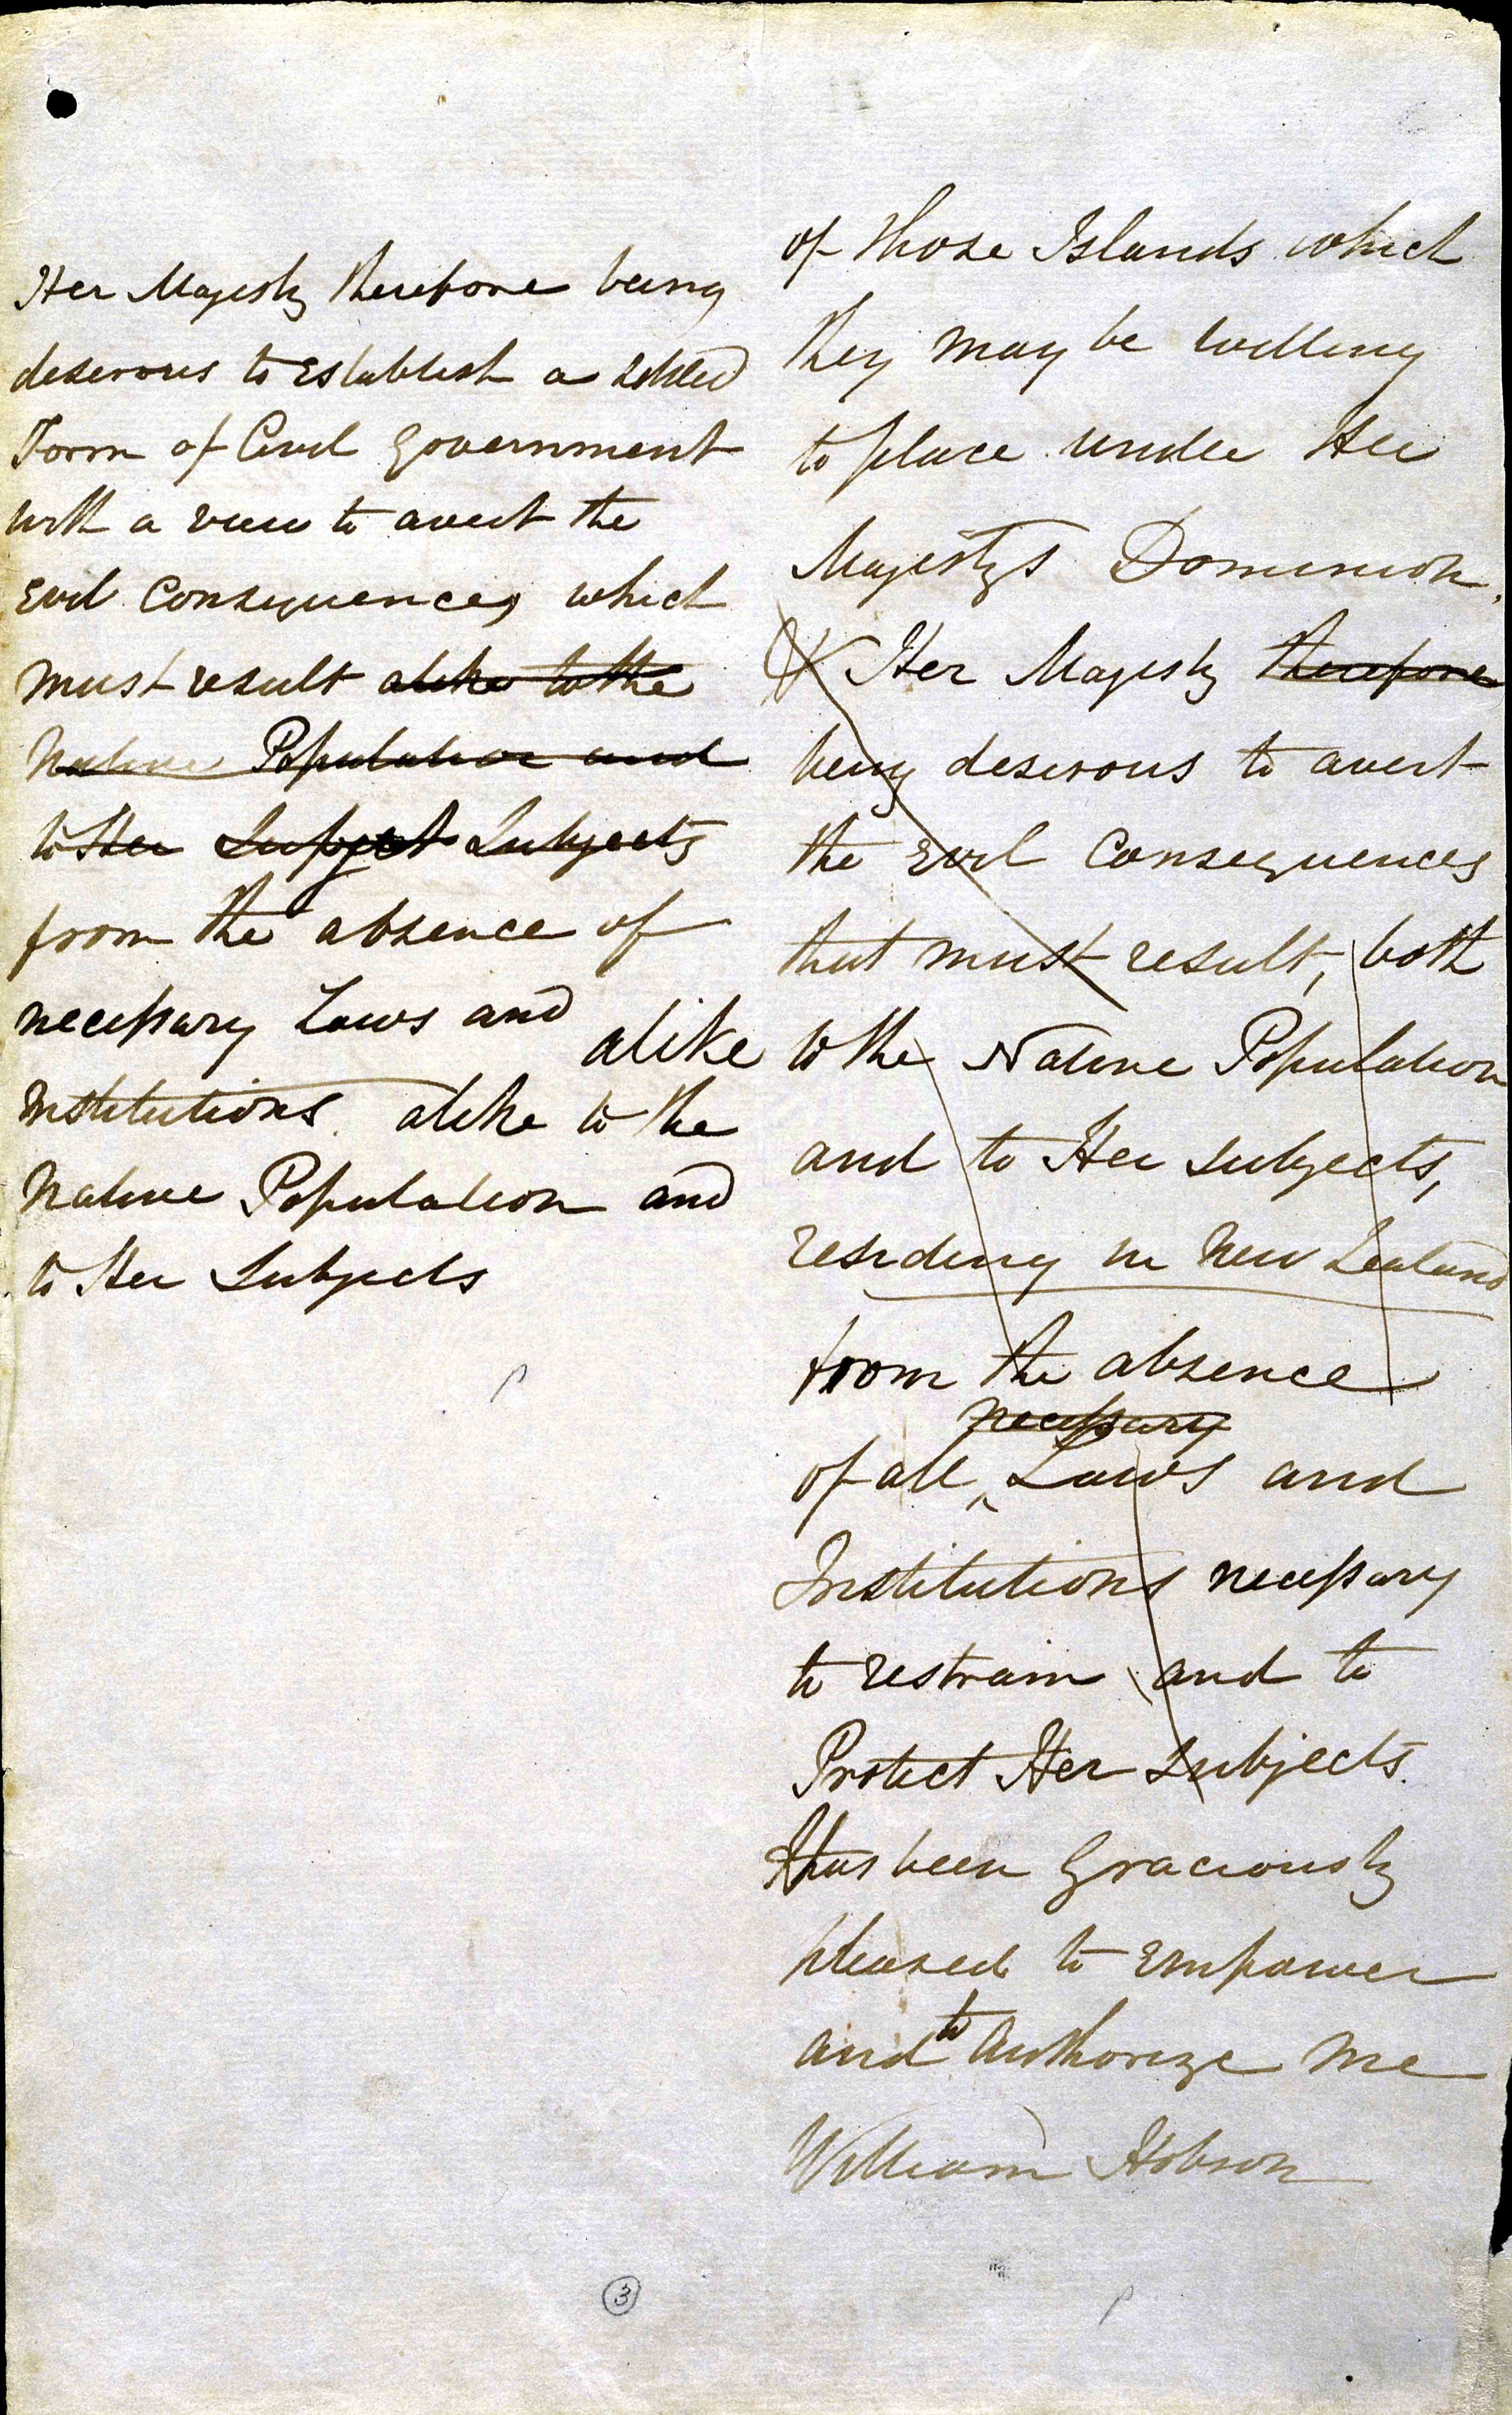 Her Majesty therefore being
desirous to establish a settled
Form of Civil Government
with a view to avert the
Evil Consequences which
must result alike to the
Native Population and
to Her Subject Subjects
from the absence of
necessary Laws and
alike
Institutions alike to the
Native Population and
to Her Subjects
of those Islands which
they may be willing
to place under Her
Majestys Dominion.
Her Majesty therefore
being desirous to avert
the Evil Consequences
that must result, both
to the Native Population
and to Her subjects,
residing in New Zealand
from the absence
necessary
of all ‸ Laws and
Institutions necessary
to restrain and to
Protect Her Subjects.
Has been Graciously
pleased to Empower
and to Authorize me
William Hobson
3